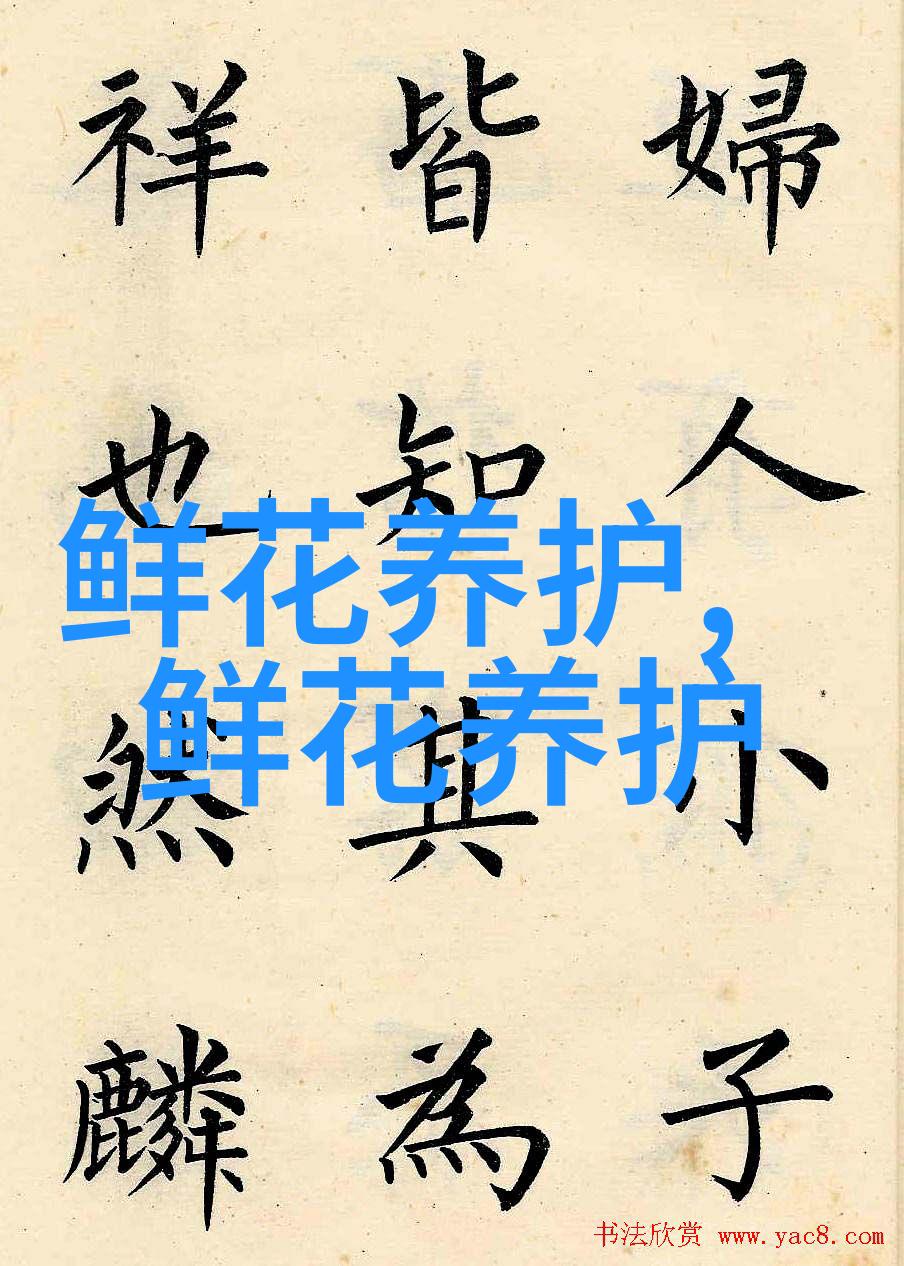 婦人小子
皆知其為
祥也然麟
鲜花养护,
鲜花养护
书法欣赏 www.yac8.com